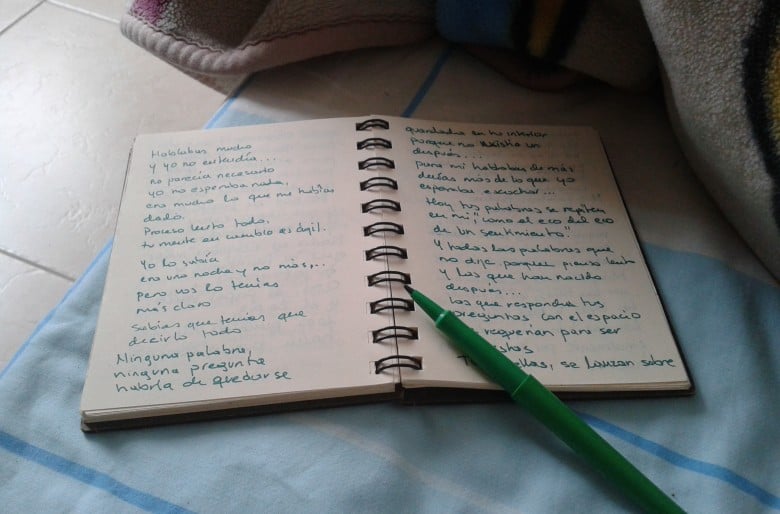 Hablabas mucho
y yo no entendía...
no parecía necesario
yo no esperaba nada,
era mucho lo que me habías
dado.
Proceso lento todo,
tu mente en cambio es ágil.
Yo lo sabía
era una noche y no más,...
pero vos lo tenías
más claro
Sabías que tenías que
decirlo todo
Ninguna palabra,
ninguna pregunta
habría de quedarse
guardada en tu interior
porque no existía un
después....
para mi hablabas de más
decías más de lo que yo
esperaba escuchar...
Hoy tus palabras se repiten
en mí "como el eco del eco
de un sentimiento"
Y todas las palabras que
no dije porque pienso lento
y las que han nacido
después....
Las que responden tus
preguntas con el espacio
requerían para ser
, se lanzan sobre